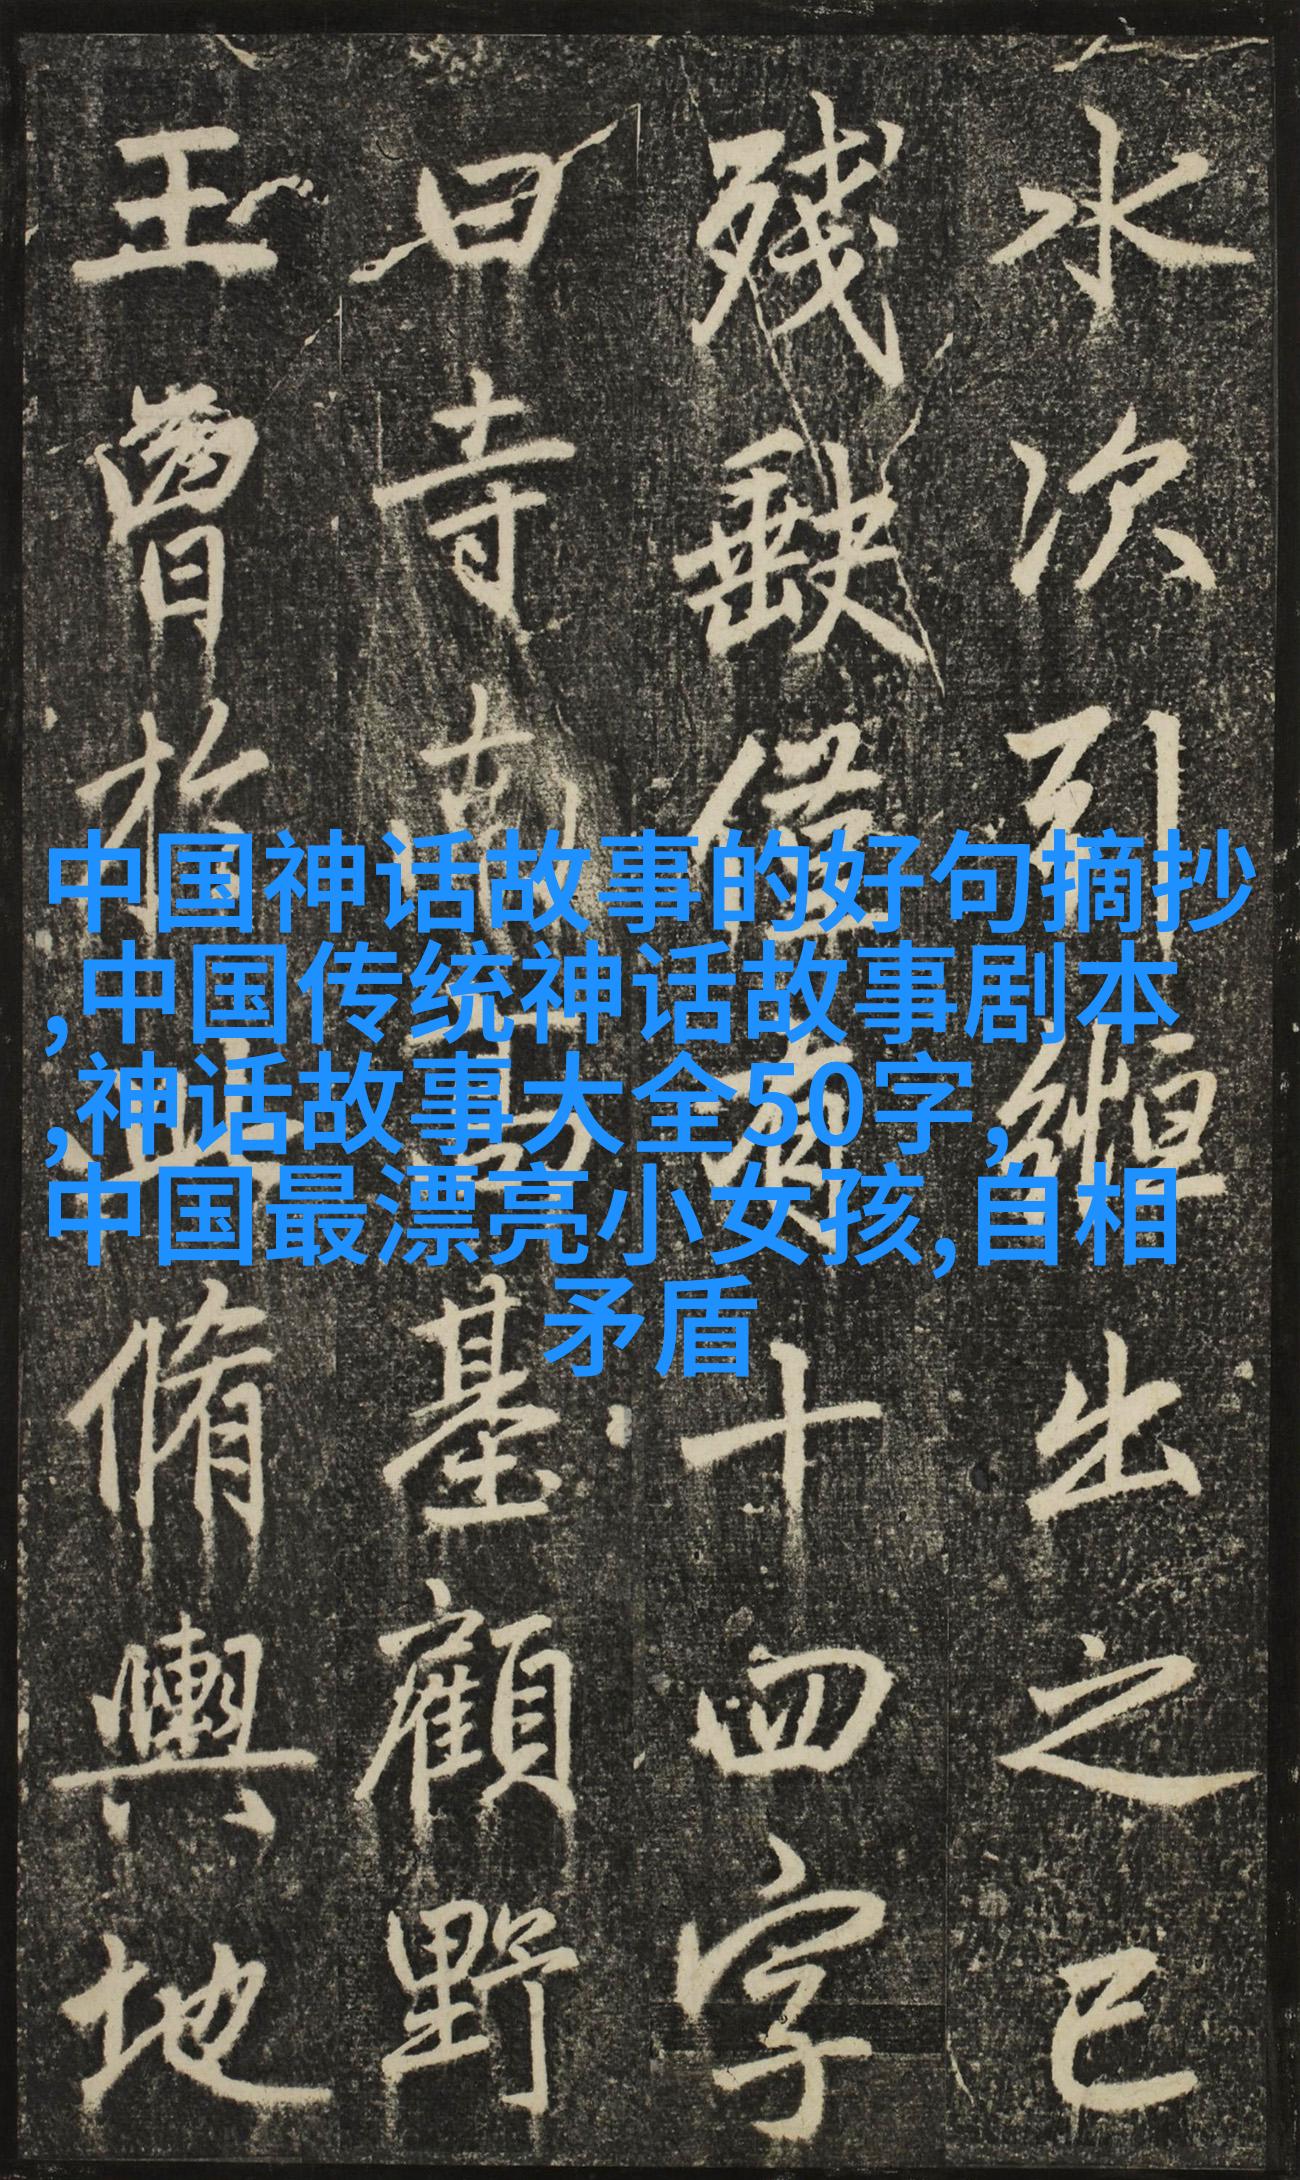 水次引繩出之已
殘缺僅十四字
曰寺南高基顧野
王曾於此脩輿地
中国神话故事的好句摘抄
,中国传统神话故事剧本
,神话故事大全50字,
中国最漂亮小女孩,自相
矛盾